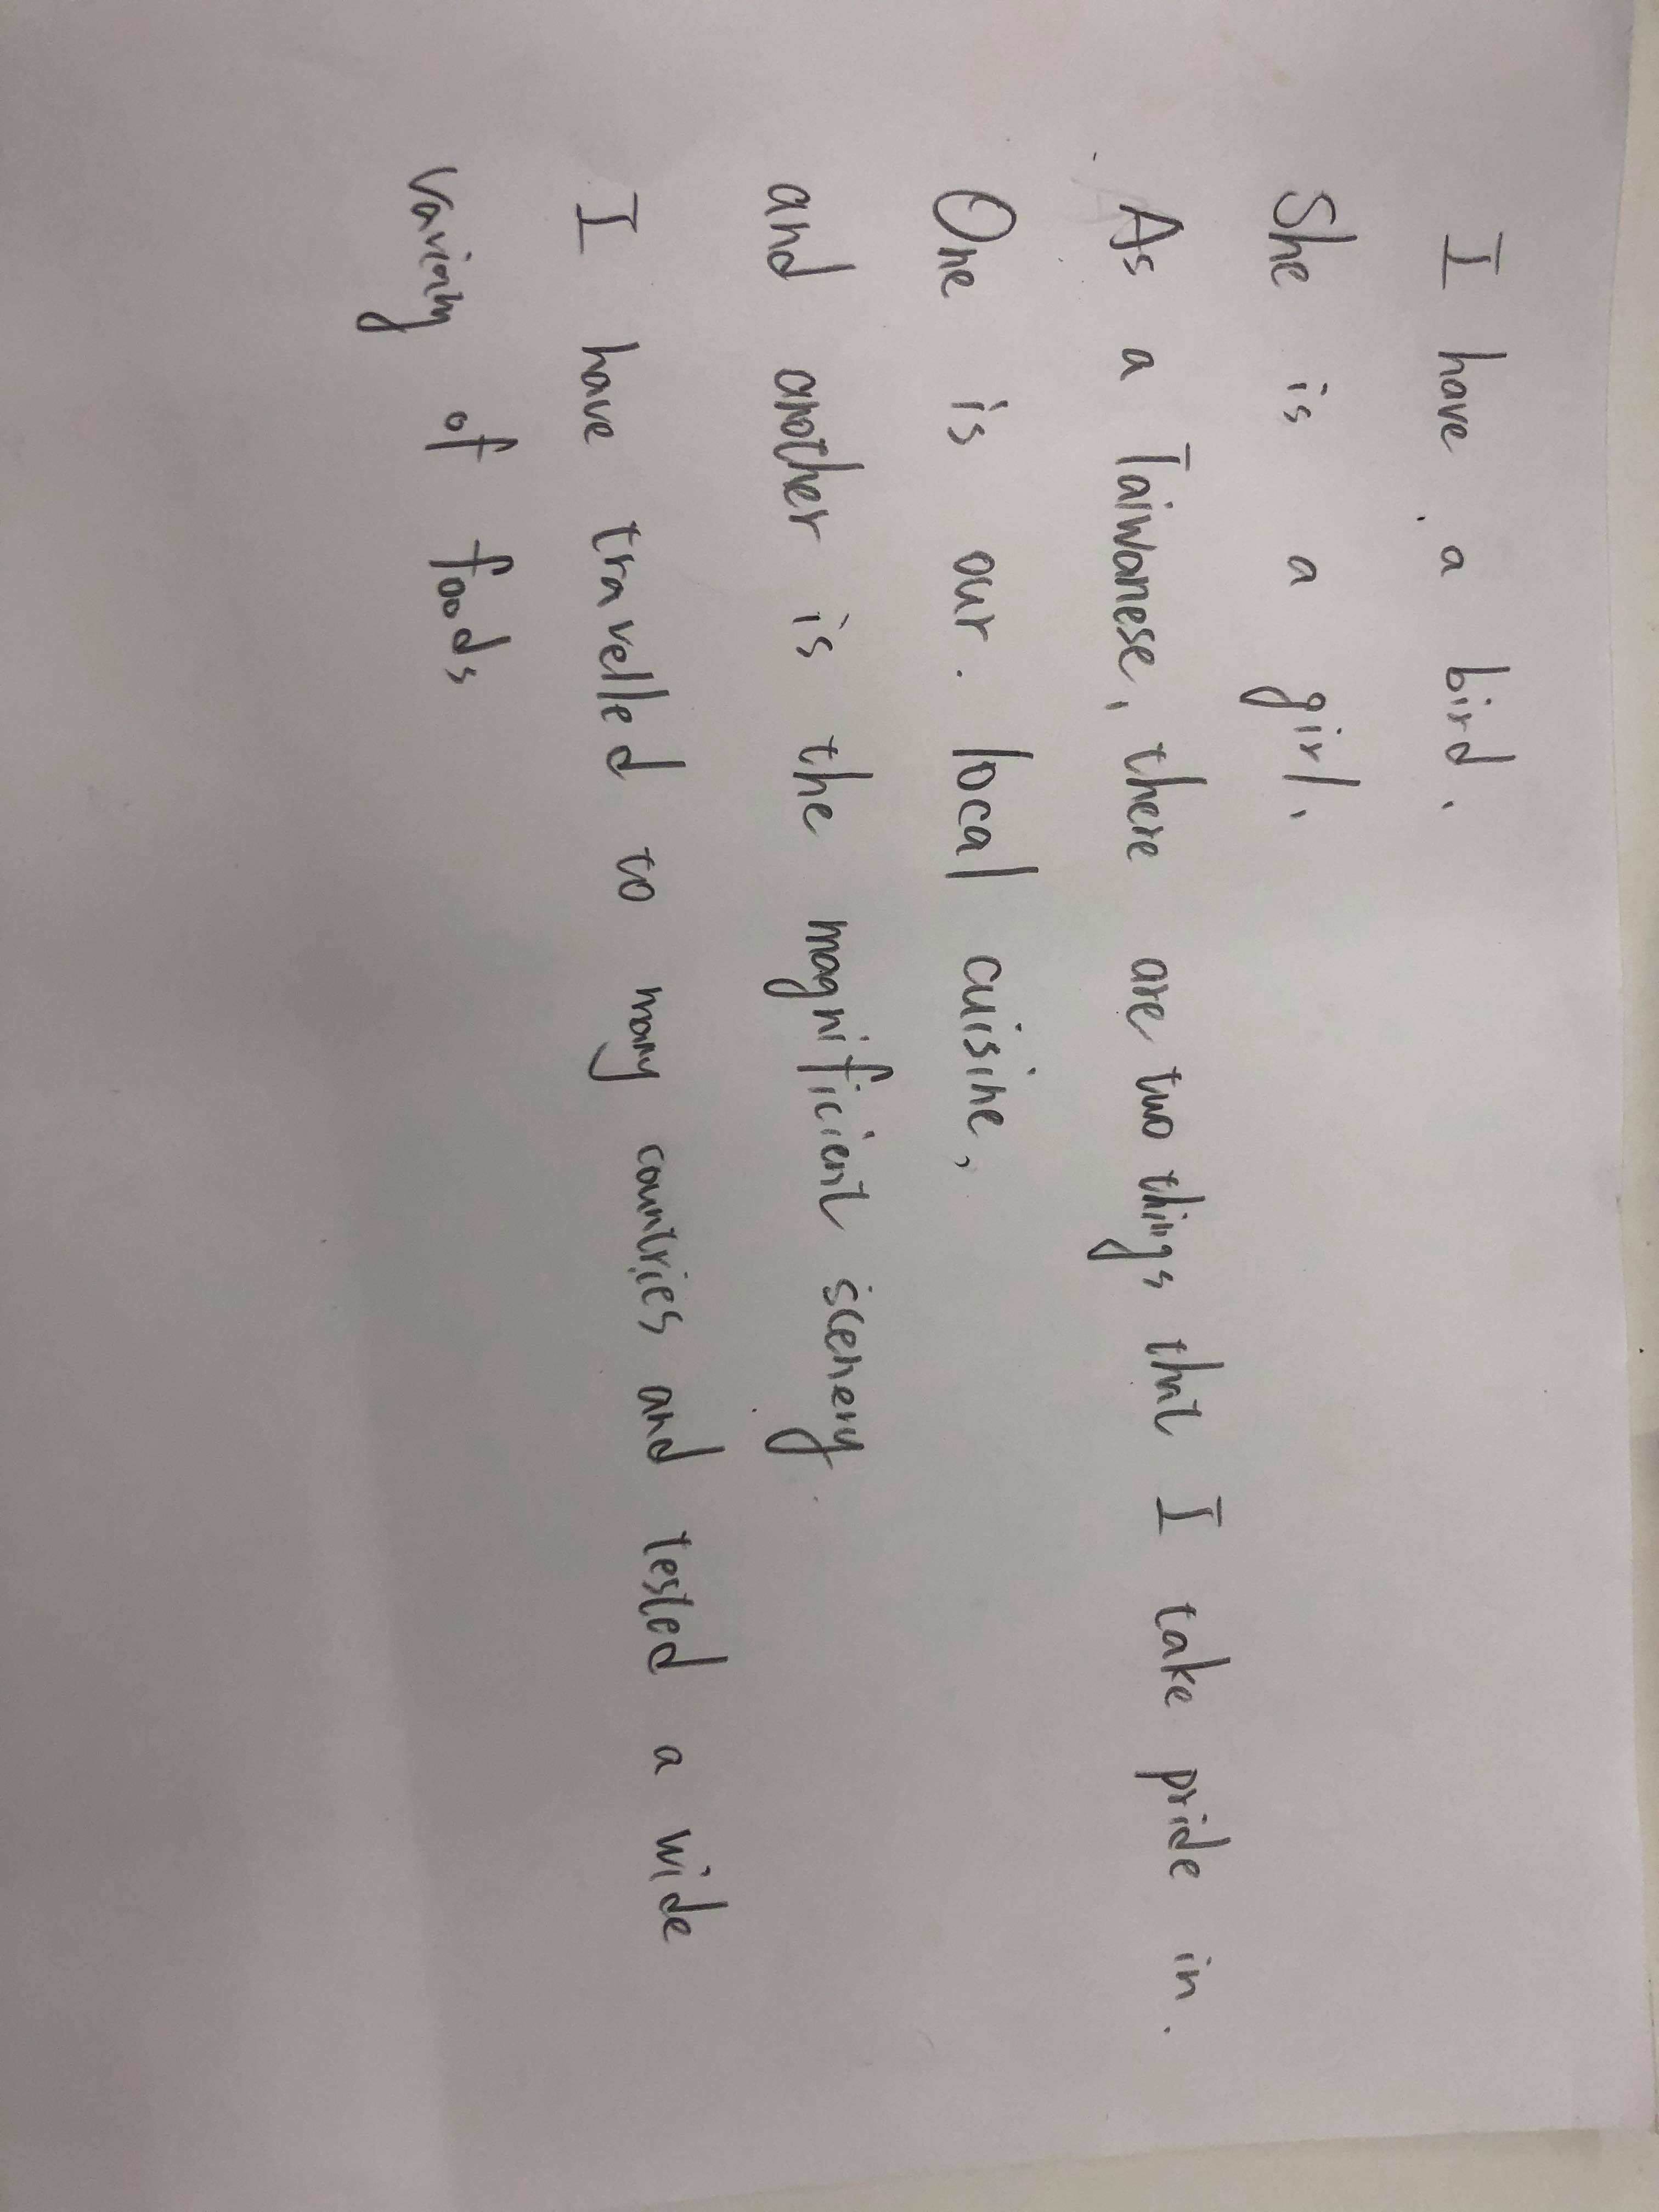 I have a bird.
She is a girl.
As a Taiwanese, there are two things that I take pride in.
One is our local cuisine,
and another is the magnificient scenery
I have travelled to many countries and tested a wide
of foods